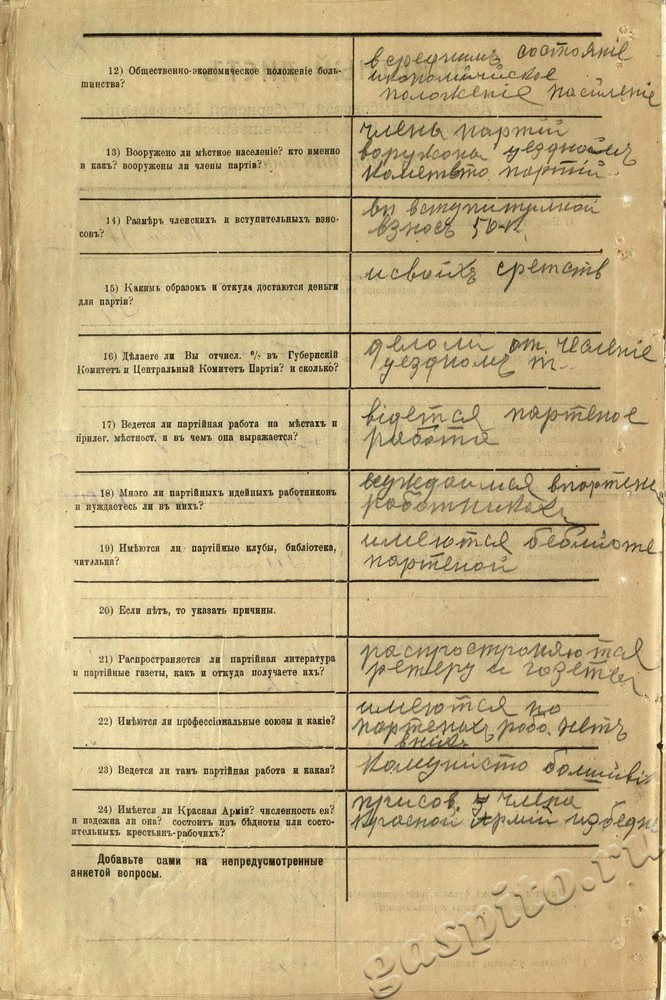 12) Общественно-экономическое положеніе боль-
шинства?
всреднимъ состояніе
икономическое
положеніе насиленіе
13) Вооружено ли мѣстное населеніе? кто именно
и какъ? вооружены ли члены партіи?
члены партій
воружона уезднамъ
камететто партій
14) Размѣръ членскихъ и вступительныхъ взно-
совъ?
вступительной
взносъ 50-к.
15) Какимъ образомъ и откуда достаются деньги
для партіи?
исвоихъ сретств
16) Дѣлаете ли Вы отчисл. % въ Губернскій
Комитетъ и Центральный Комитетъ Партіи? и сколько?
делоли от чесленіе
уездному
17) Ведется ли партійная работа на мѣстахъ и
прилег. мѣстност. и въ чемъ она выражается?
відется партеное
работа
18) Много ли партійныхъ идейныхъ работниковъ
и нуждаетесь ли въ нихъ?
нуждаимся впартен
работниках
19) Имѣются ли партійные клубы, библіотека,
читальня?
имеются беблиоте
партеной
20) Если нѣтъ, то указать причины.
21) Распространяется ли партійная литература
и партійные газеты, какъ и откуда получаете ихъ?
распространяются
и газеты
22) Имѣются ли профессіональные союзы и какіе?
имеются но
партеных робо. нетъ
вних
23) Ведется ли тамъ партійная работа и какая?
Комунисто болшиві
24) Имѣется ли Красная Армія? численность ея?
и надежна ли она? состоитъ изъ бѣдноты или состо-
ятельныхъ крестьян-рабочихъ?
члена
Красной Армій избедн
Добавьте сами на непредусмотренные
анкетой вопросы.
gaspito.ru